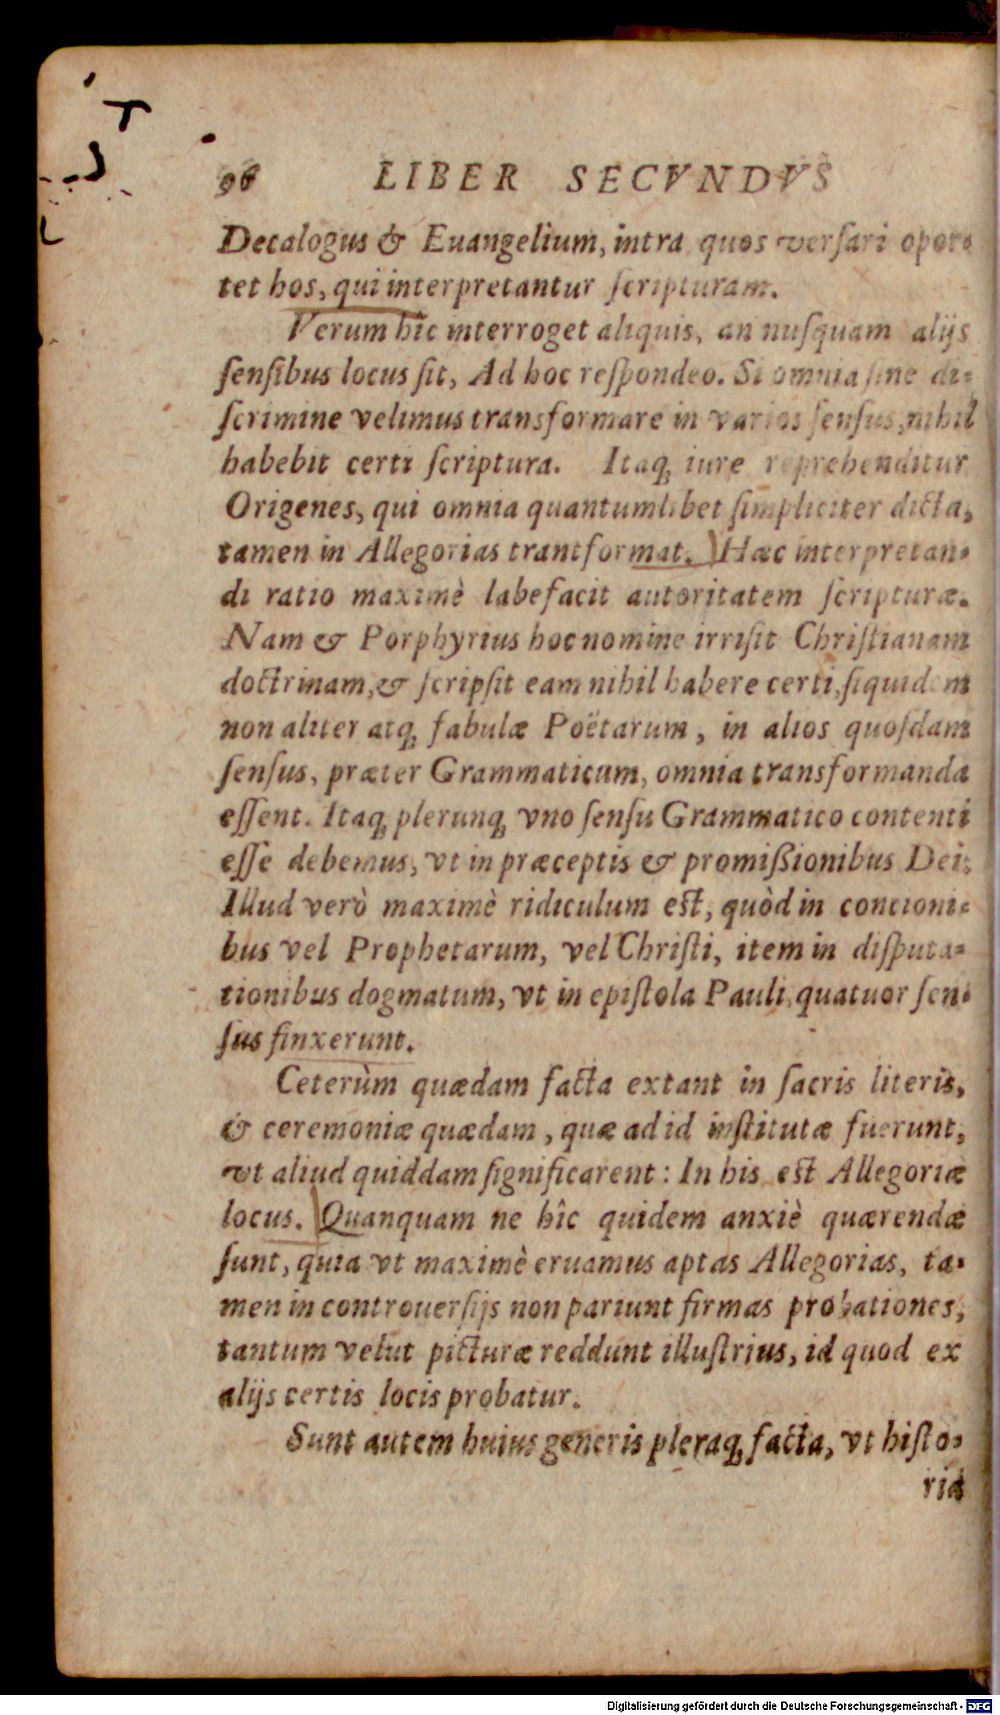 96 LIBER SECVNDVS
Decalogus & Euangelium, intra quos versari opor-
tet hos, qui interpretantur scripturam.
Verum hîc interroget aliquis, an nusquam alijs
sensibus locus sit, Ad hoc respondeo. Si omnia sine di-
scrimine velimus transformare in varios sensus, nihil
habebit certi scriptura. Itaq; iure reprehenditur
Origenes, qui omnia quantumlibet simpliciter dicta,
tamen in Allegorias trantformat. Hæc interpretan-
di ratio maximè labefacit autoritatem scripturæ.
Nam & Porphyrius hoc nomine irrisit Christianam
doctrinam, & scripsit eam nihil habere certi, siquidem
non aliter atq; fabulæ Poëtarum, in alios quosdam
sensus, præter Grammaticum, omnia transformanda
essent. Itaq; plerunq; vno sensu Grammatico contenti
esse debemus, vt in præceptis & promißionibus Dei:
Illud verò maximè ridiculum est, quòd in concioni-
bus vel Prophetarum, vel Christi, item in disputa-
tionibus dogmatum, vt in epistola Pauli, quatuor sen-
sus finxerunt.
Ceterùm quædam facta extant in sacris literis,
& ceremoniæ quædam, quæ ad id institutæ fuerunt,
vt aliud quiddam significarent: In his est Allegoriæ
locus. Quanquam ne hîc quidem anxiè quærendæ
sunt, quia vt maximè eruamus aptas Allegorias, ta-
men in controuersijs non pariunt firmas probationes,
tantum velut picturæ reddunt illustrius, id quod ex
alijs certis locis probatur.
Sunt autem huius generis pleraq; facta, vt histo-
riæ
Digitalisierung gefördert durch die Deutsche Forschungsgemeinschaft - DFG